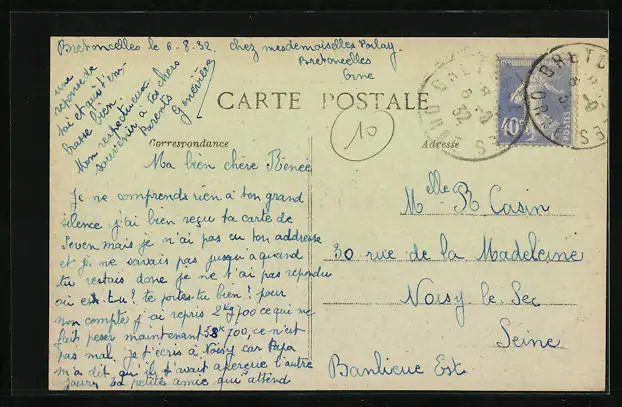 Bretoncelles le 6-8-32. chez mesdemoiselles
Bretoncelles
Orne
CARTE POSTALE
10
Correspondance
Adresse
REPUBLIQUE FRANCAISE
40c
POSTES
Ma bien chère Renée
Je ne comprends rien à ton grand
silence j'ai bien reçu ta carte de
mais je n'ai pas eu ton addresse
et je ne savais pas jusqu'à quand
tu restais donc je ne t'ai pas repondu
où es-tu? te portes-tu bien? pour
mon compte j'ai repris 2Kg700 ce qui me
fait peser maintenant 700, ce n'est
pas mal. je t'écris à Noisy car Papa
m'a dit qu'il t'avait aperçue l'autre
jour, ta petite amie qui attend
une
reponse de
toi et qui t'em-
brasse bien
Mon respectueux
souvenir à tes chers
Parents
Geneviève
Melle R Casin
30 rue de la Madeleine
Noisy le Sec
Seine
Banlieue Est